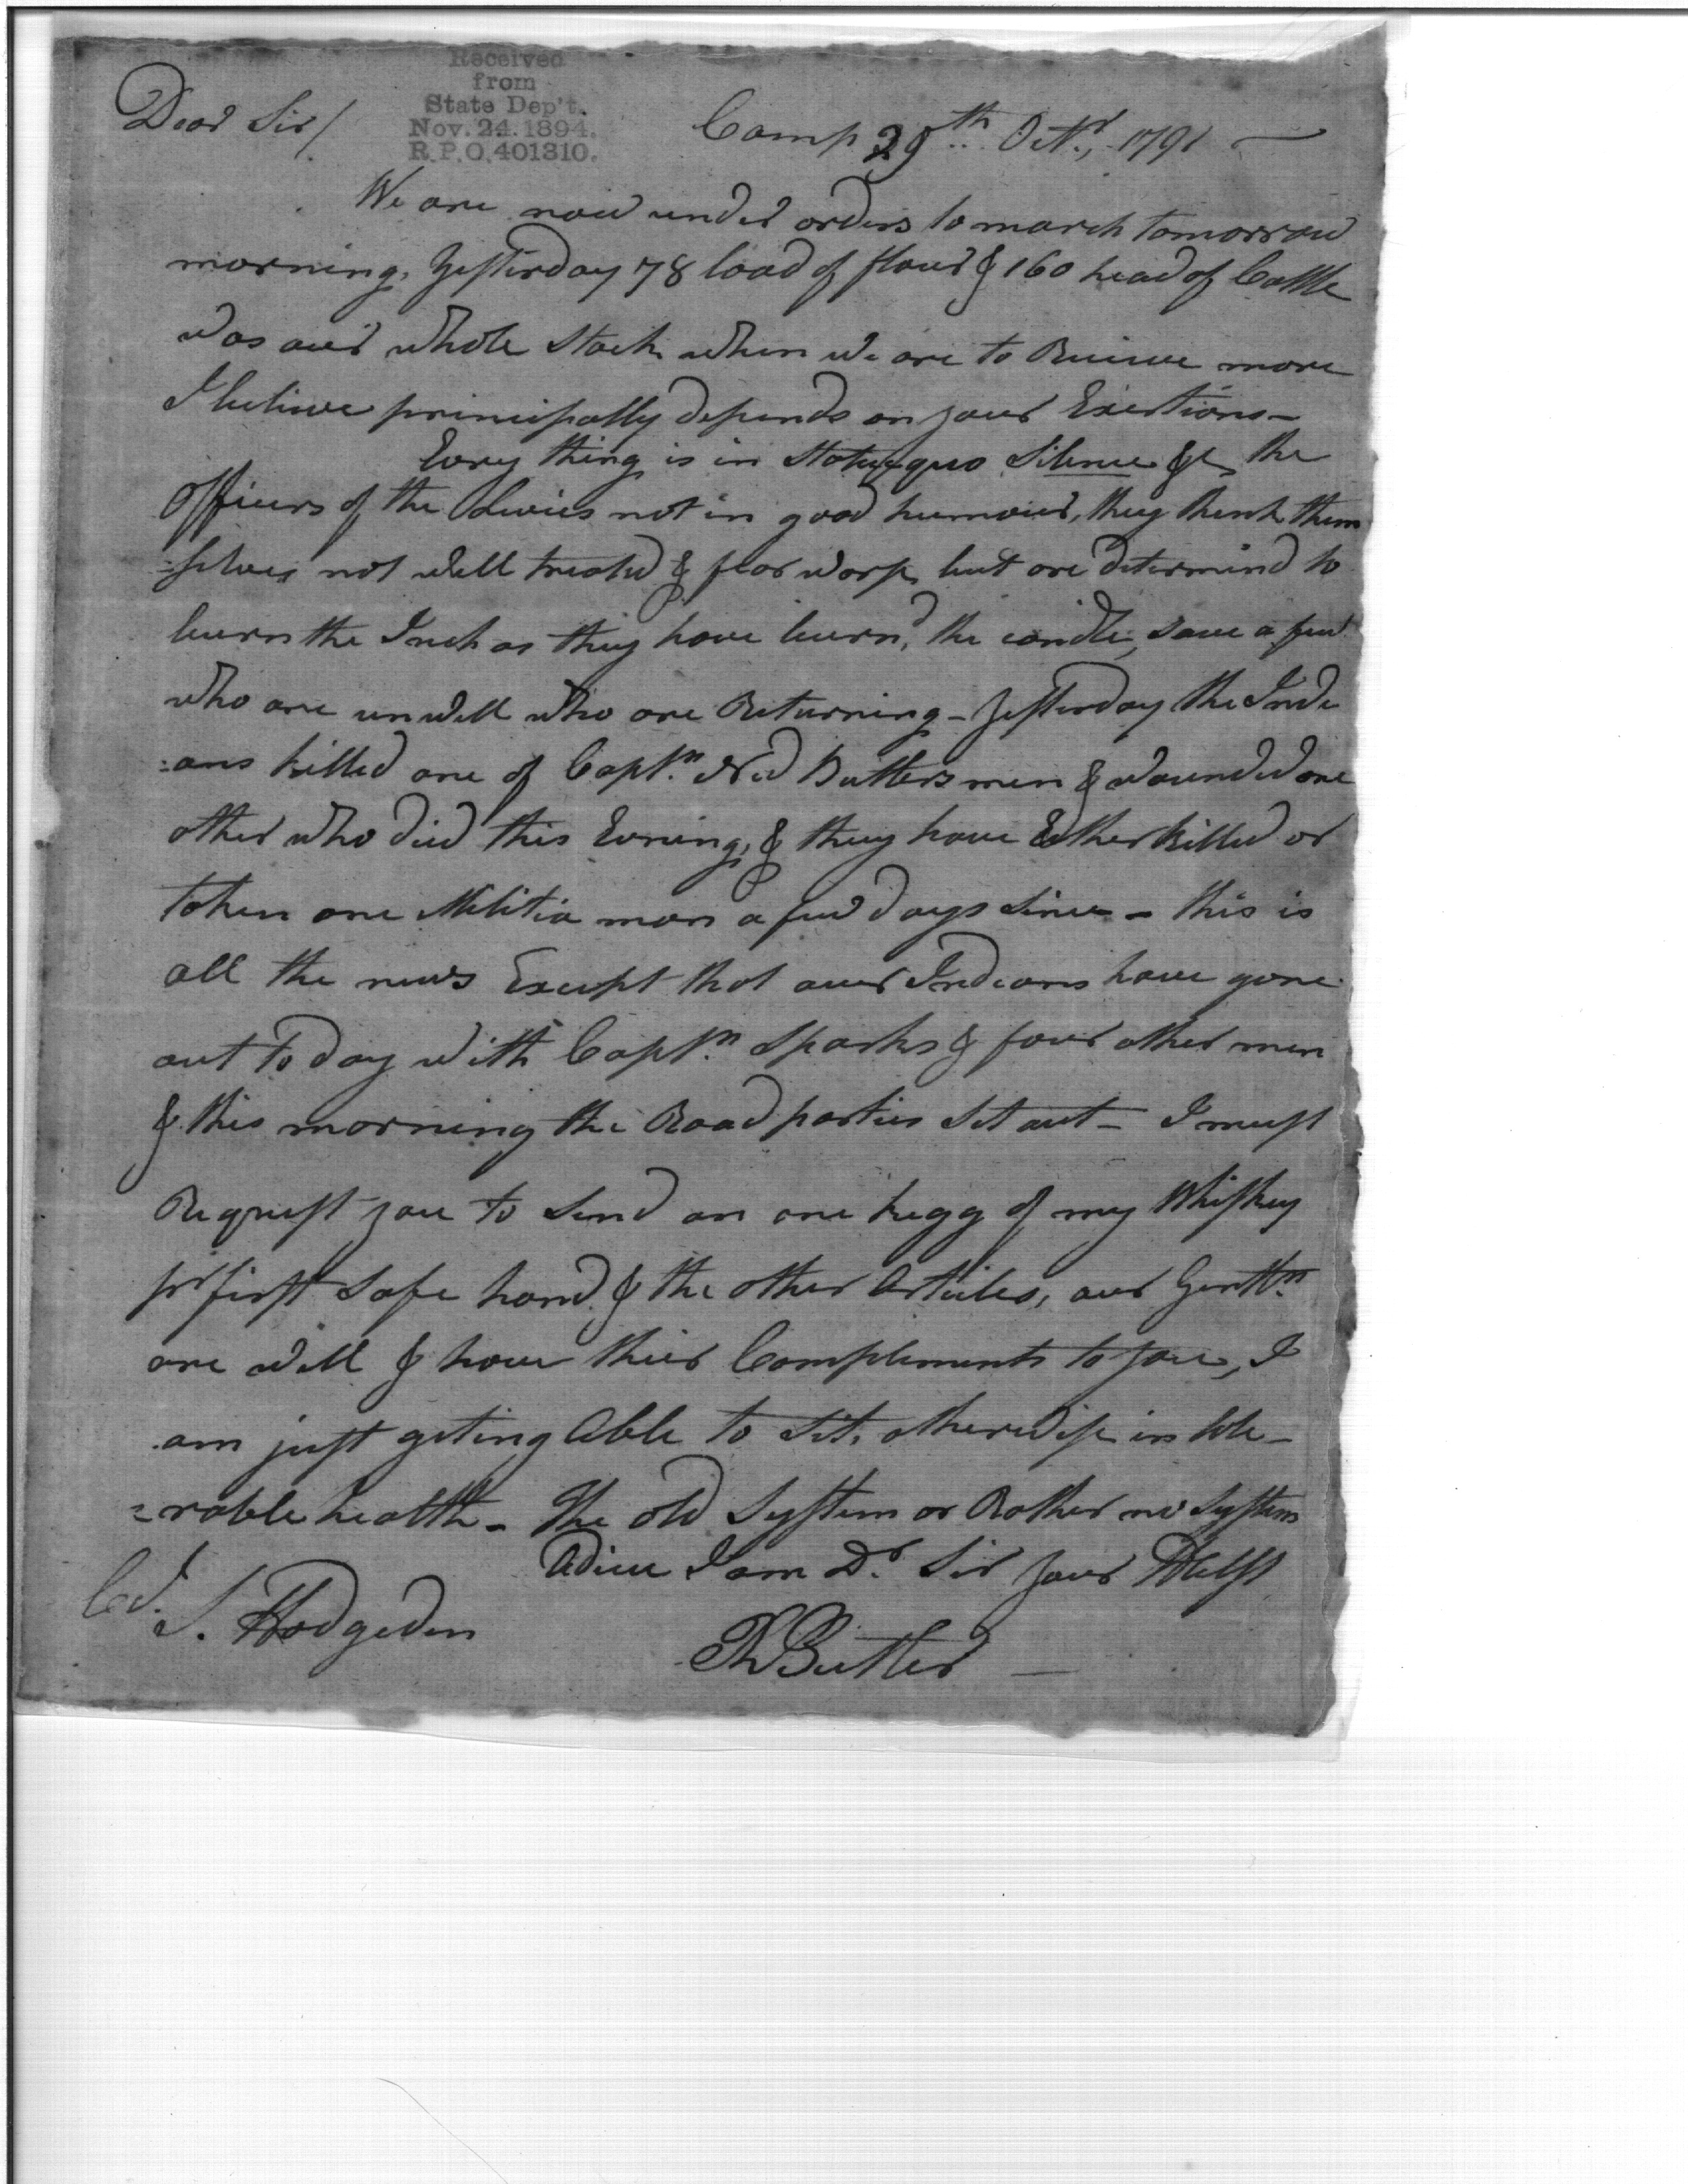 Received
from
State Dep't.
Nov. 24. 1894.
R.P.O. 401310.
Dear Sir/
Camp 29th Octr, 1791 —
We are now under orders to march tomorrow
morning, yesterday 78 load of flour & 160 head of Cattle
was our whole Stock when we are to Receive more
I believe principally depends on your Exertions —
Every thing is in Statuquo Silence &c, the
Officers of the Levies not in good humour, they think them
=selves not well treated & fear worse, but are determind to
burn the Inch as they have burn'd, the candle, save a few
who are unwell who are Returning — yesterday the Indi
=ans killed one of Captn Ned Butlers men & wounded one
other who died this Evning, & they have Either killed or
taken one Militia man a few days since — this is
all the news Except that our Indians have gone
out to day with Captn Sparks & four other men
& this morning the Road parties set out — I must
Request you to send on one kegg of my Whiskey
pr first safe hand & the other Articles, our Gentln
are well & have their Compliments to you, I
am just geting Able to sit, otherwise in tole —
=rable health — the old System or Rather no System
Adieu I am Dr. Sir your
Cl. S. Hodgeden
RButler —